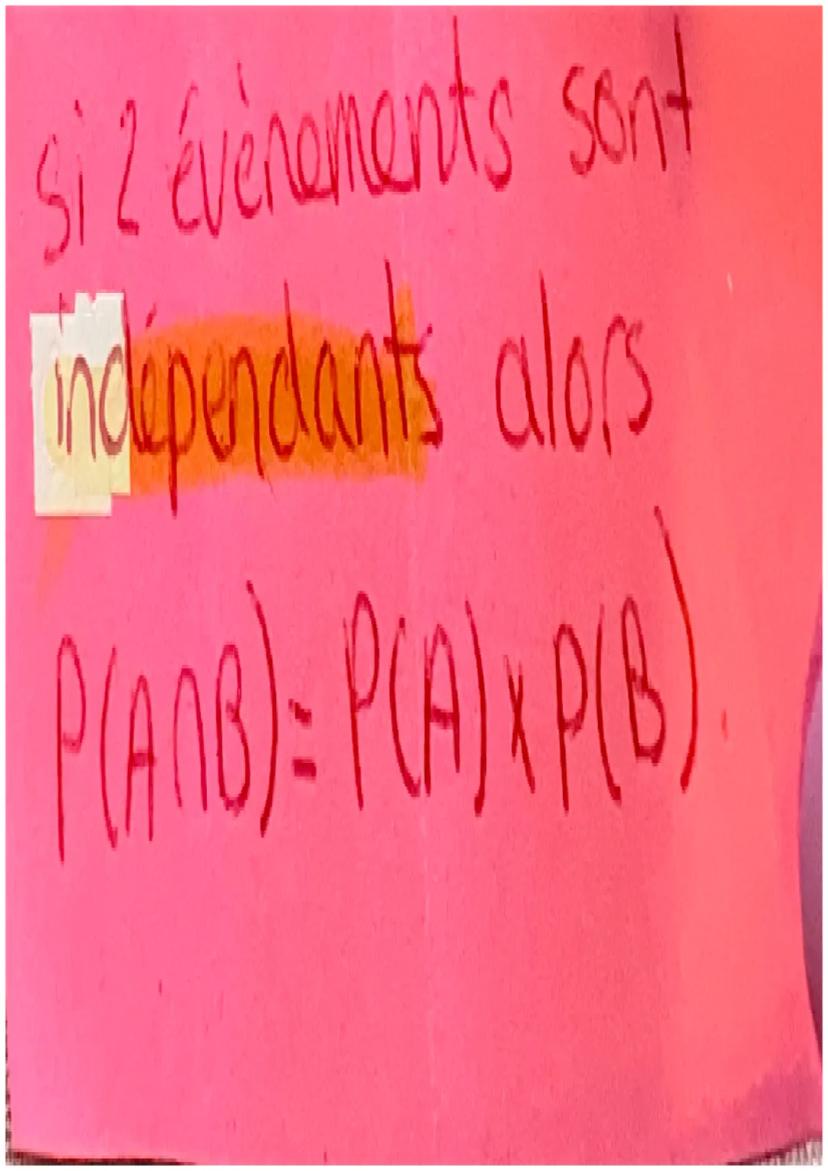 si 2 évènements sont
indépendants alors
P(A∩B) = P(A) x P(B).